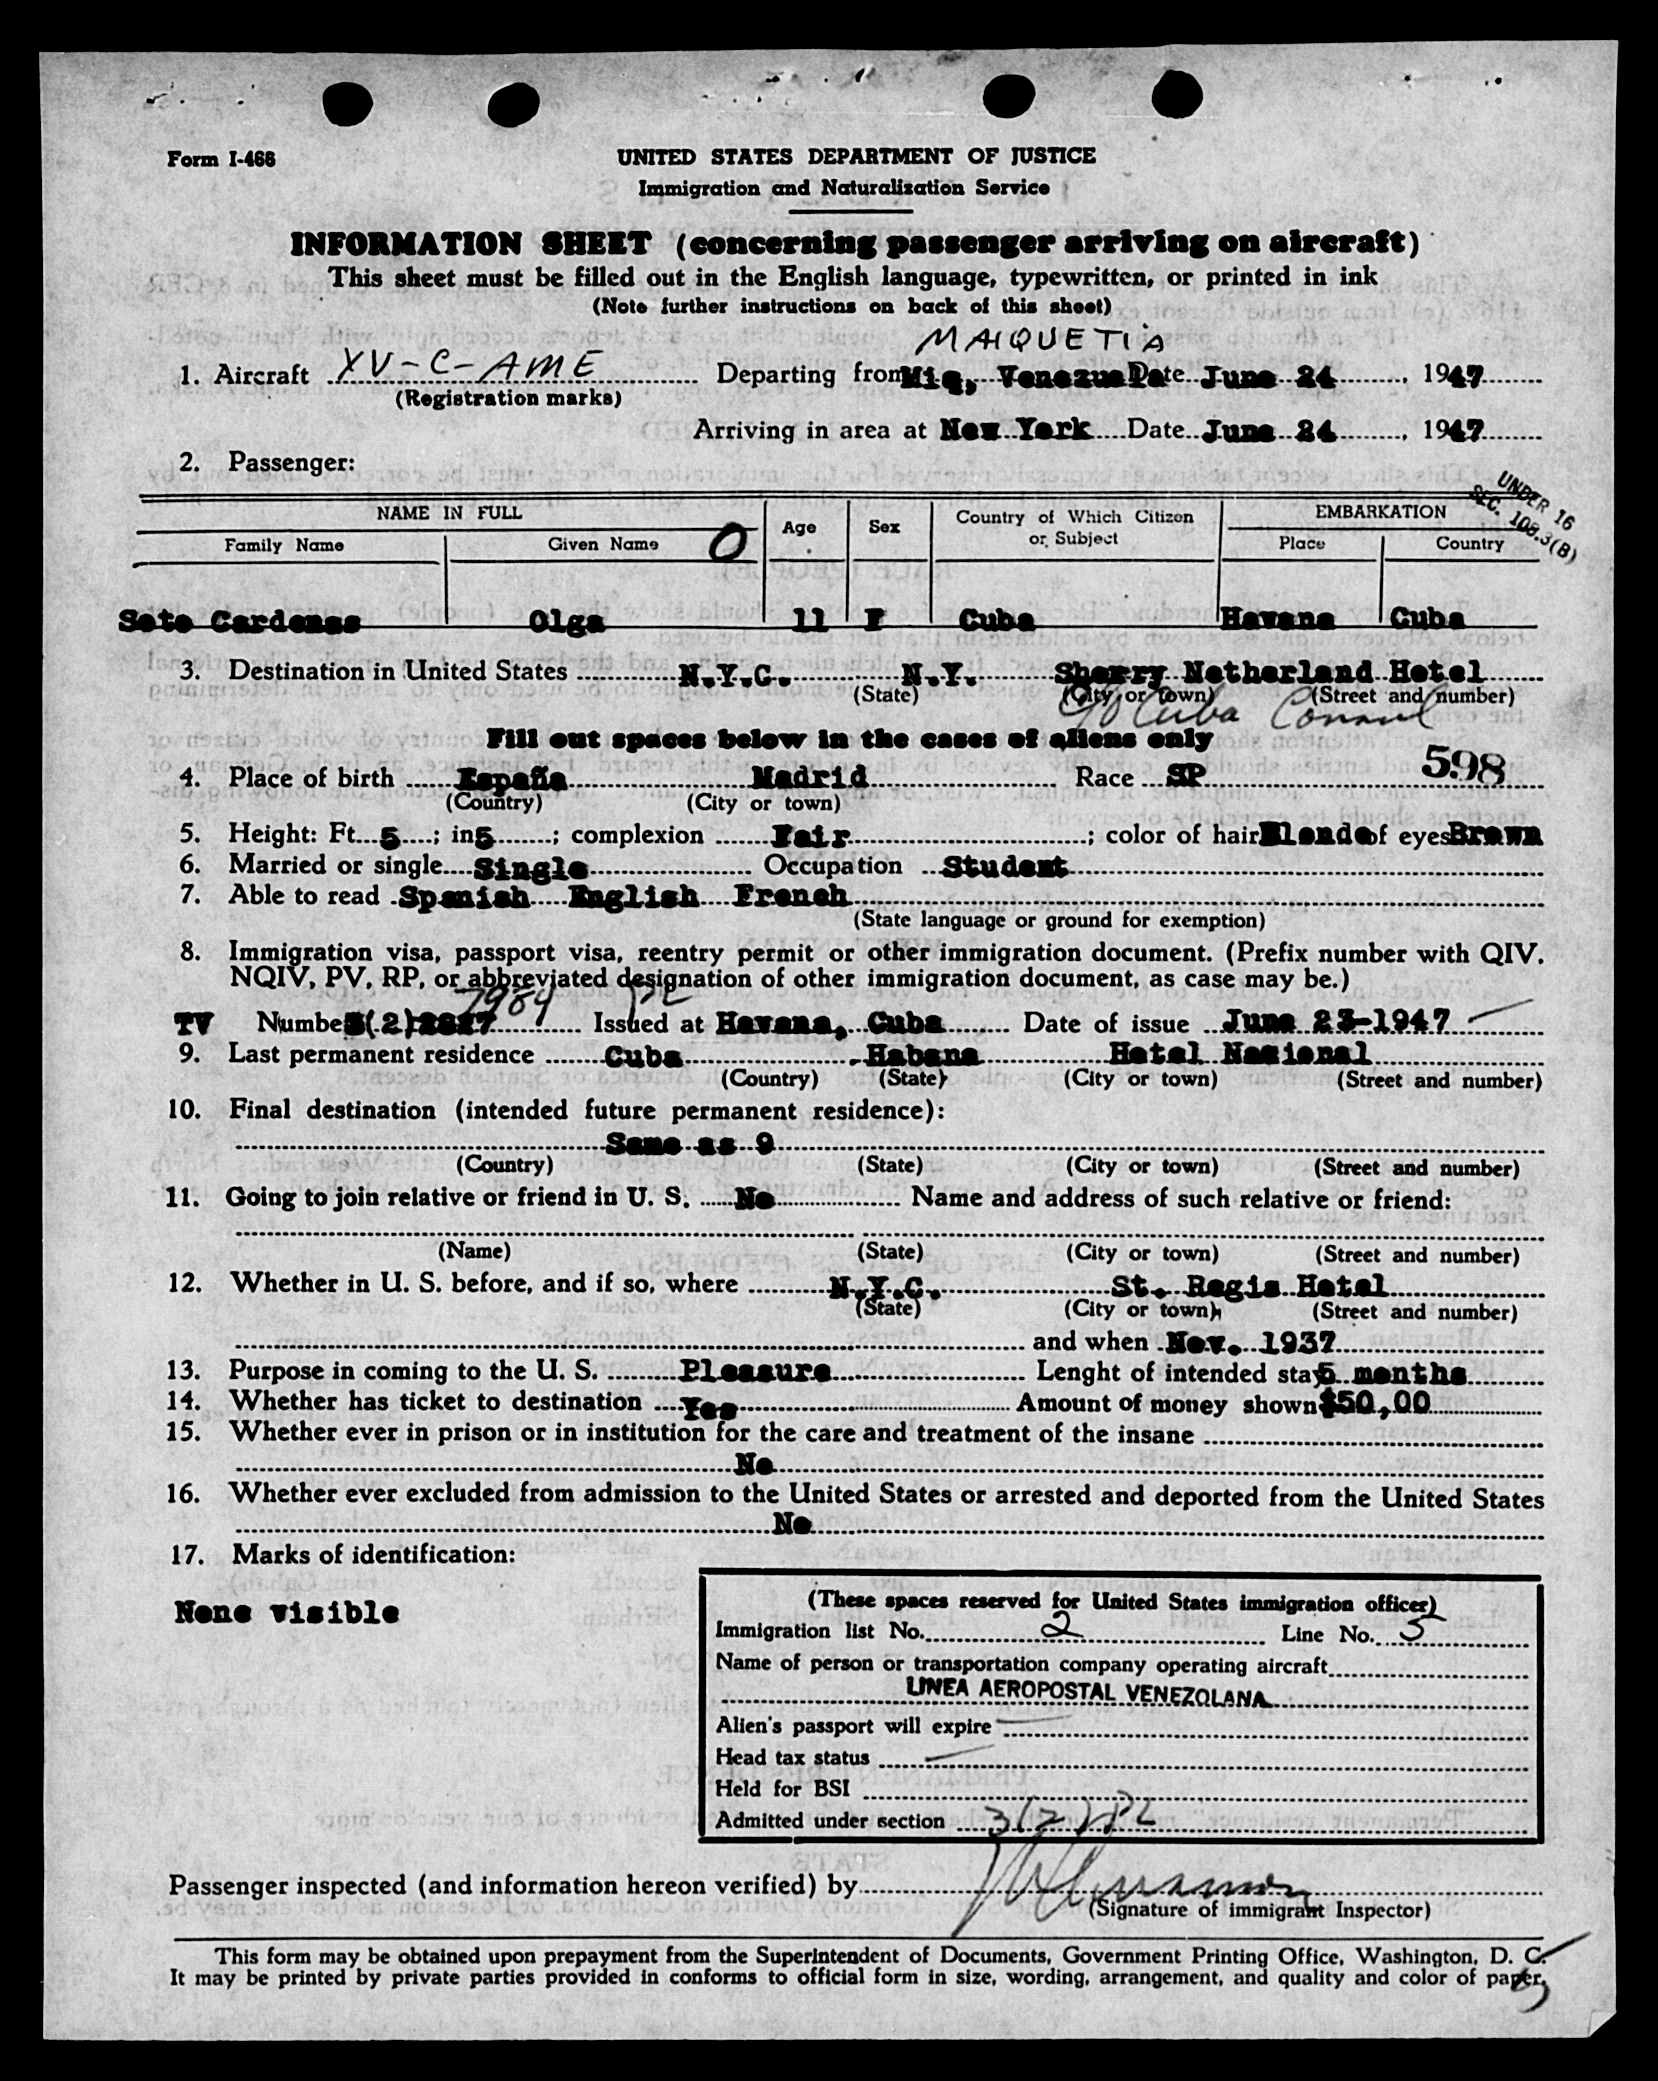 Form I-466
UNITED STATES DEPARTMENT OF JUSTICE
Immigration and Naturalization Service
INFORMATION SHEET (concerning passenger arriving on aircraft)
This sheet must be filled out in the English language, typewritten, or printed in ink
(Note further instructions on back of this sheet)
MAIQUETIA
1. Aircraft YV-C-AME Departing from Miq, Venezuela Date June 24, 1947
(Registration marks)
Arriving in area at New York Date June 24, 1947
2. Passenger:
UNDER 16
SEC. 108.3(B)
NAME IN FULL Age Sex Country of Which Citizen or Subject EMBARKATION
Family Name Given Name O Place Country
Soto Cardenas Olga 11 F Cuba Havana Cuba
3. Destination in United States N.Y.C. N.Y. Sherry Netherland Hotel
(State) (City or Town) (Street and number)
c/o Cuba Consul
Fill out spaces below in the cases of aliens only
598
4. Place of birth España Madrid Race SP
(Country) (City or town)
5. Height: Ft. 5; in 5; complexion Fair; color of hair Blonde of eyes Brown
6. Married or single Single Occupation Student
7. Able to read Spanish English French
(State language or ground for exemption)
8. Immigration visa, passport visa, reentry permit or other immigration document. (Prefix number with QIV.
NQIV, PV, RP, or abbreviated designation of other immigration document, as case may be.)
7984 PL
TV Number 3(2) Issued at Havana, Cuba Date of issue June 23-1947
9. Last permanent residence Cuba Habana Hotel Nacional
(Country) (State) (City or town) (Street and number)
10. Final destination (intended future permanent residence):
Same as 9
(Country) (State) (City or town) (Street and number)
11. Going to join relative or friend in U. S. No Name and address of such relative or friend:
(Name) (State) (City or town) (Street and number)
12. Whether in U. S. before, and if so, where N.Y.C. St. Regis Hotel
(State) (City or town) (Street and number)
and when Nov. 1937
13. Purpose in coming to the U. S. Pleasure Lenght of intended stay 5 months
14. Whether has ticket to destination Yes Amount of money shown $50,00
15. Whether ever in prison or in institution for the care and treatment of the insane
No
16. Whether ever excluded from admission to the United States or arrested and deported from the United States
No
17. Marks of identification:
None visible
(These spaces reserved for United States immigration officer)
Immigration list No. 2 Line No. 5
Name of person or transportation company operating aircraft
LINEA AEROPOSTAL VENEZOLANA
Alien's passport will expire
Head tax status
Held for BSI
Admitted under section 3(2) PL
Passenger inspected (and information hereon verified) by
(Signature of immigrant Inspector)
This form may be obtained upon prepayment from the Superintendent of Documents, Government Printing Office, Washington, D. C.
It may be printed by private parties provided in conforms to official form in size, wording, arrangement, and quality and color of paper.